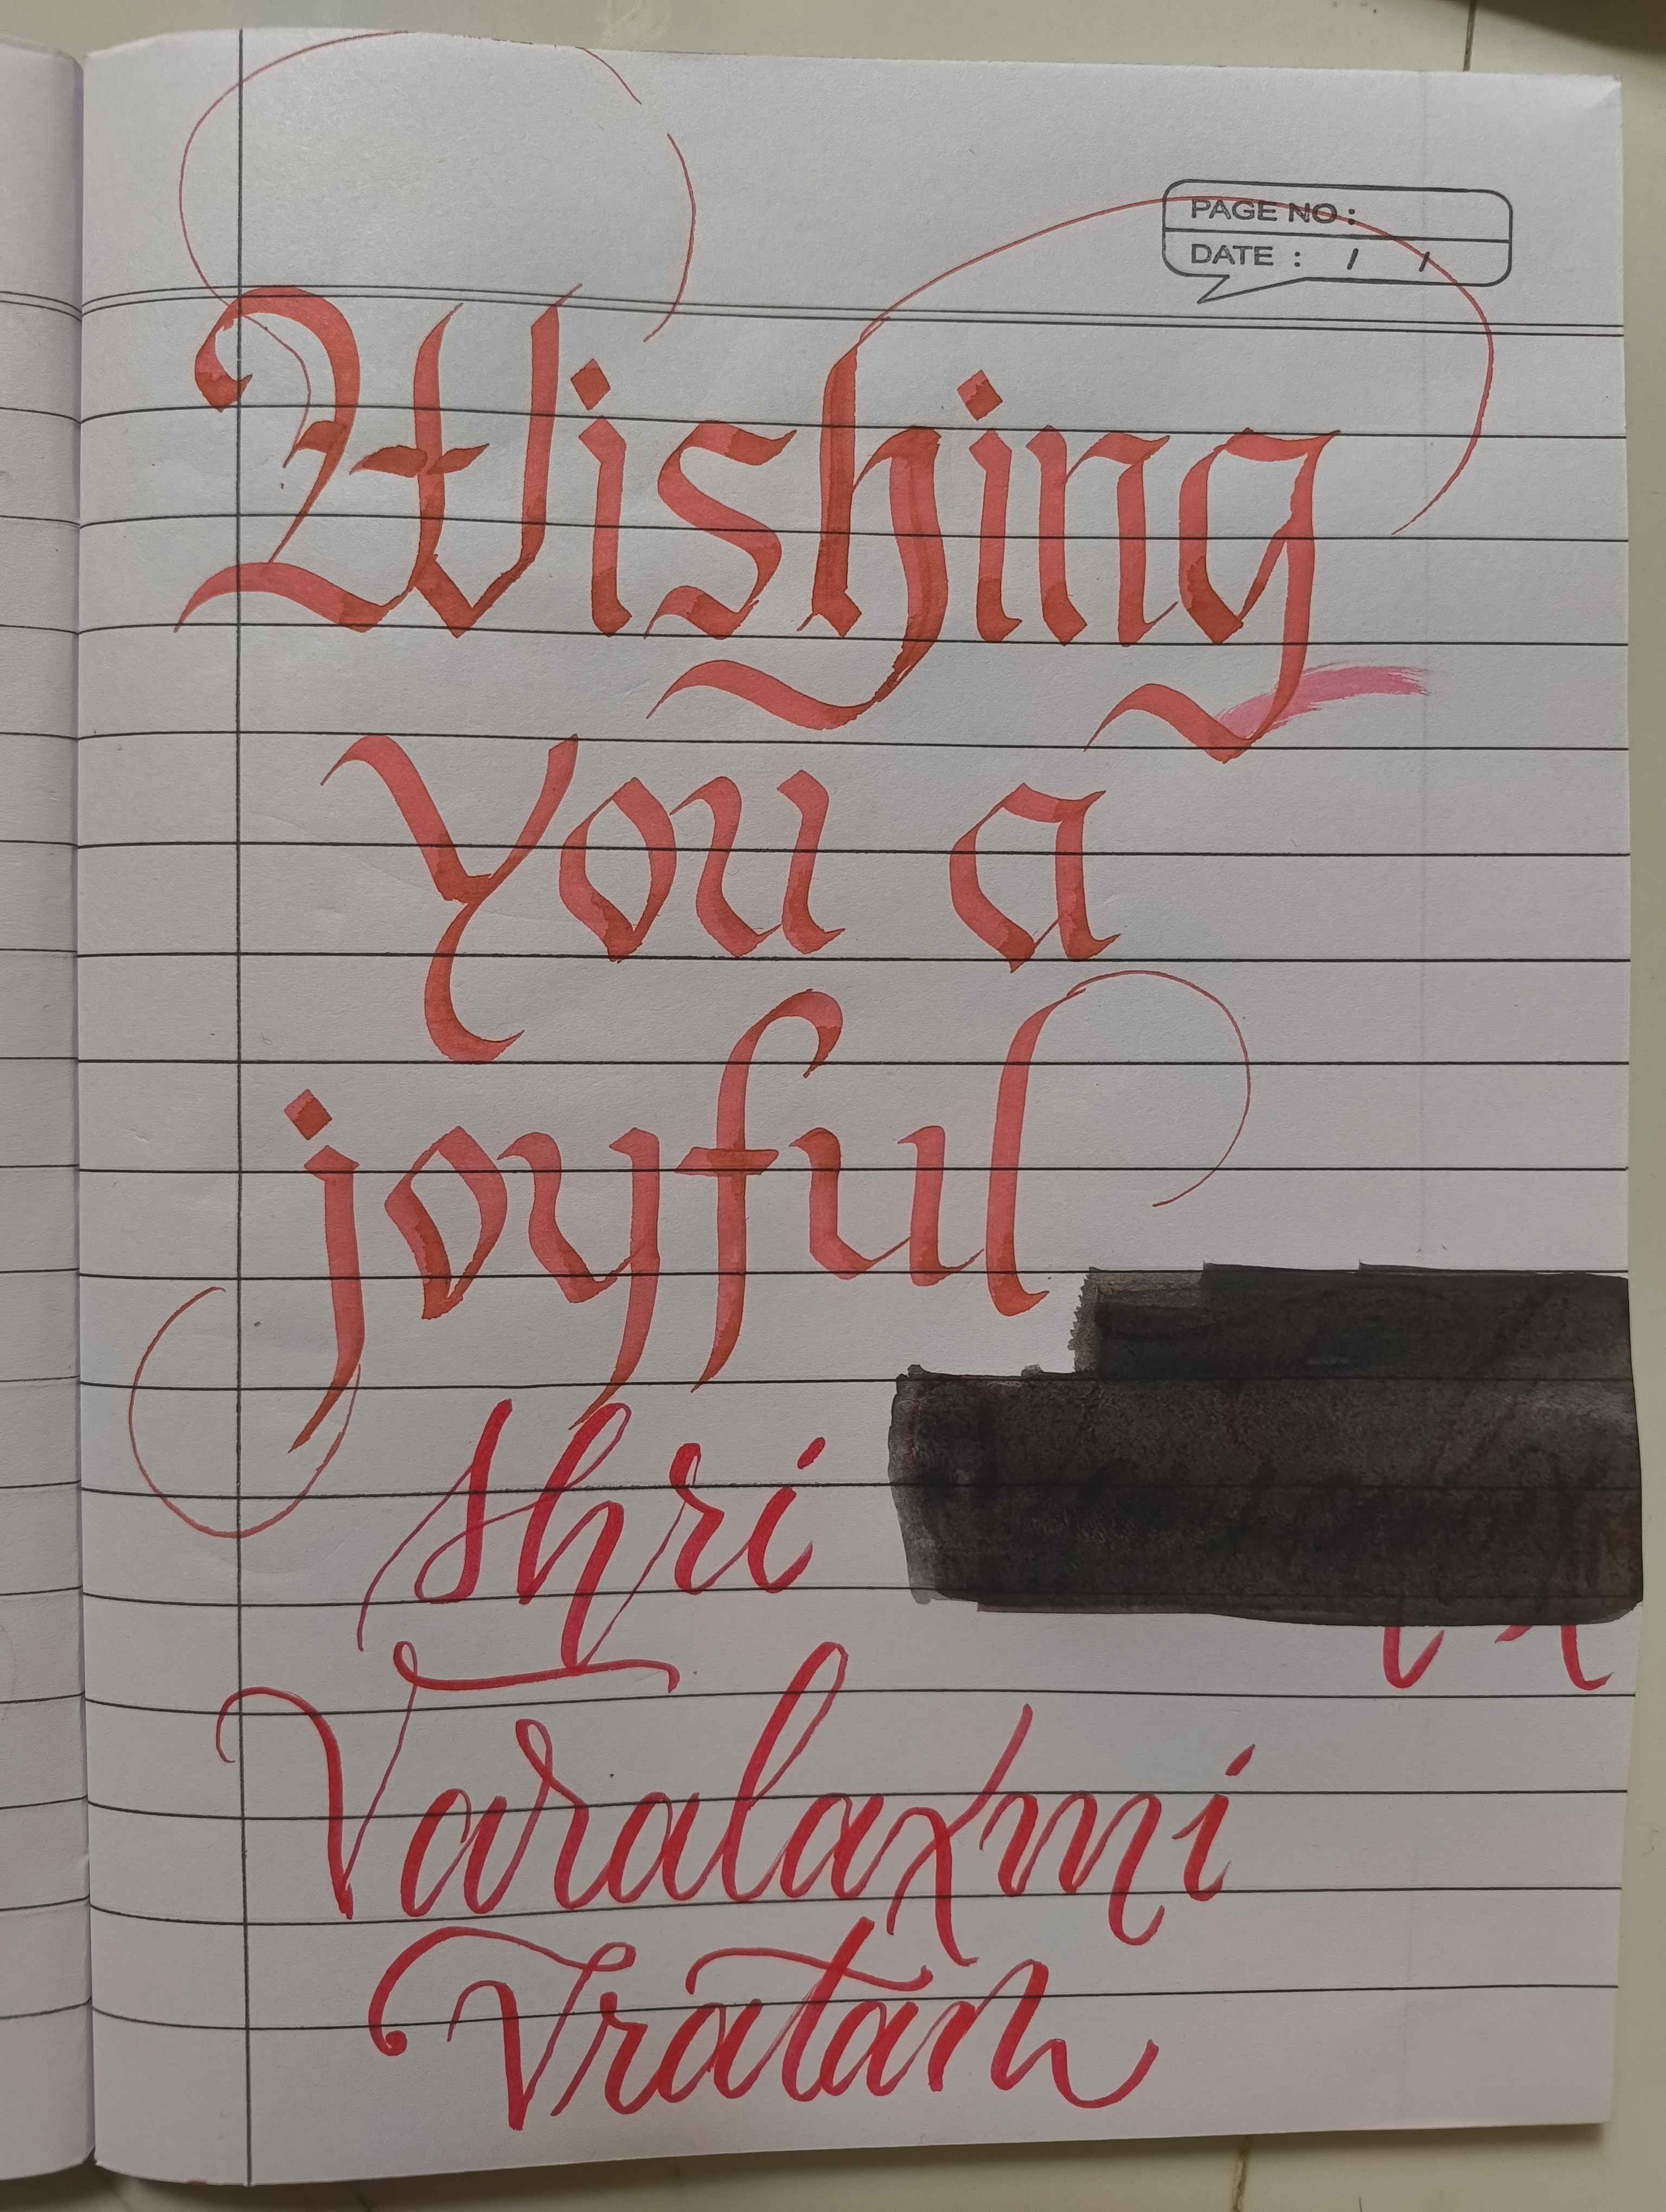 PAGE NO :
DATE : / /
Wishing
You a
joyful
shri
Varalaxmi
Vratan